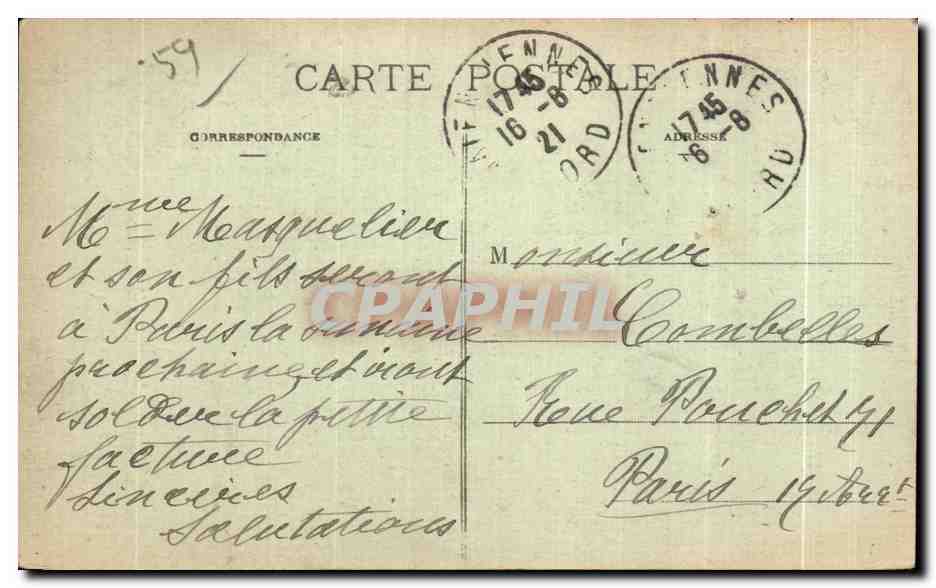 59
CARTE POSTALE
CORRESPONDANCE
ADRESSE
VALENCIENNES
1745
16-8
21
NORD
ENNES
1745
6-8
RD
Mme Masquelier
et son fils seront
à Paris la semaine
prochaine, et iront
solder la petite
facture
Sincères
Salutations
Monsieur
Combelles
Rue Pouchet 71
Paris 17 Arrt
CPAPHIL